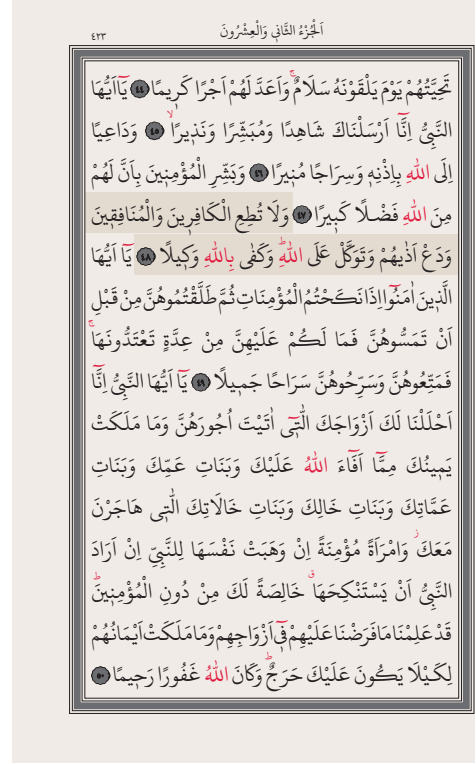 اَلْجُزْءُ الثَّانٖي وَالْعِشْرُونَ
٤٢٣
تَحِيَّتُهُمْ يَوْمَ يَلْقَوْنَهُ سَلَامٌۚ وَاَعَدَّ لَهُمْ اَجْرًا كَرٖيمًا ﴿٤٤﴾ يَٓا اَيُّهَا
النَّبِيُّ اِنَّٓا اَرْسَلْنَاكَ شَاهِدًا وَمُبَشِّرًا وَنَذٖيرًاۙ ﴿٤٥﴾ وَدَاعِيًا
اِلَى اللّٰهِ بِاِذْنِهٖ وَسِرَاجًا مُنٖيرًا ﴿٤٦﴾ وَبَشِّرِ الْمُؤْمِنٖينَ بِاَنَّ لَهُمْ
مِنَ اللّٰهِ فَضْلًا كَبٖيرًا ﴿٤٧﴾ وَلَا تُطِعِ الْكَافِرٖينَ وَالْمُنَافِقٖينَ
وَدَعْ اَذٰيهُمْ وَتَوَكَّلْ عَلَى اللّٰهِؕ وَكَفٰى بِاللّٰهِ وَكٖيلًا ﴿٤٨﴾ يَٓا اَيُّهَا
الَّذٖينَ اٰمَنُٓوا اِذَا نَكَحْتُمُ الْمُؤْمِنَاتِ ثُمَّ طَلَّقْتُمُوهُنَّ مِنْ قَبْلِ
اَنْ تَمَسُّوهُنَّ فَمَا لَكُمْ عَلَيْهِنَّ مِنْ عِدَّةٍ تَعْتَدُّونَهَاۚ
فَمَتِّعُوهُنَّ وَسَرِّحُوهُنَّ سَرَاحًا جَمٖيلًا ﴿٤٩﴾ يَٓا اَيُّهَا النَّبِيُّ اِنَّٓا
اَحْلَلْنَا لَكَ اَزْوَاجَكَ الّٰتٖٓي اٰتَيْتَ اُجُورَهُنَّ وَمَا مَلَكَتْ
يَمٖينُكَ مِمَّٓا اَفَٓاءَ اللّٰهُ عَلَيْكَ وَبَنَاتِ عَمِّكَ وَبَنَاتِ
عَمَّاتِكَ وَبَنَاتِ خَالِكَ وَبَنَاتِ خَالَاتِكَ الّٰتٖي هَاجَرْنَ
مَعَكَؗ وَامْرَاَةً مُؤْمِنَةً اِنْ وَهَبَتْ نَفْسَهَا لِلنَّبِيِّ اِنْ اَرَادَ
النَّبِيُّ اَنْ يَسْتَنْكِحَهَاۗ خَالِصَةً لَكَ مِنْ دُونِ الْمُؤْمِنٖينَؕ
قَدْ عَلِمْنَا مَا فَرَضْنَا عَلَيْهِمْ فٖٓي اَزْوَاجِهِمْ وَمَا مَلَكَتْ اَيْمَانُهُمْ
لِكَيْلَا يَكُونَ عَلَيْكَ حَرَجٌؕ وَكَانَ اللّٰهُ غَفُورًا رَحٖيمًا ﴿٥٠﴾